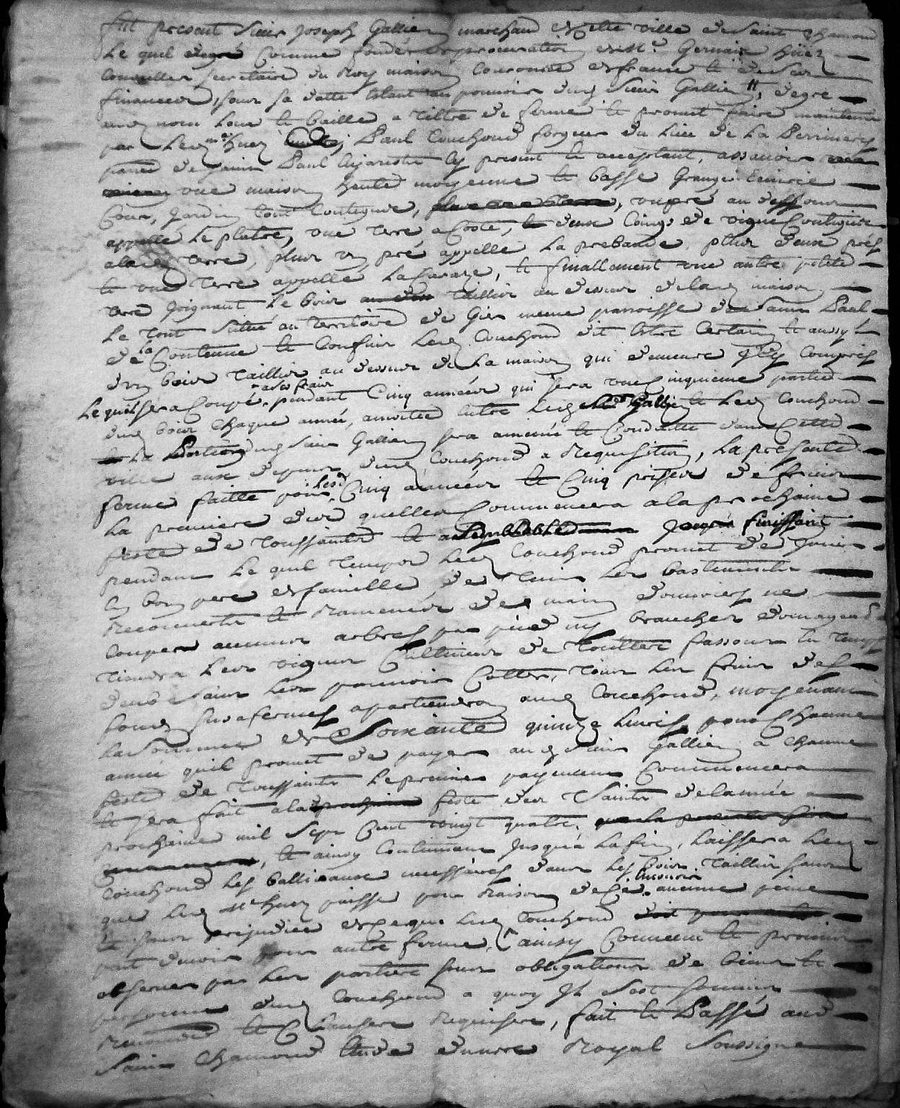 fut present Sieur Joseph Gallien marchand de cette ville de Saint Chamond
Lequel comme fondé de procuration de Mr. Germain
Conseiller Secretaire du Roy maison Couronne de france et de ses
finances, pour sa datte du pouvoir dud. Sieur Gallien, de gré
aud. nom Loue et baille a tiltre de ferme et promet faire maintenir
par Led. mr. huez Paul Couchoud forgeur du Lieu de La
parroisse de Saint Paul en Jarests icy present et acceptant, assavoir
une maison haute moyenne et basse Grange Ecurie
Cour, Jardin tout Contigue, un pré au dessous
appellé Le platre, une terre a Coté, et deux Coings de vigne Contigue
a lad. terre plus un pré appellé La prebande, plus deux prés
et une terre appellé La faraze, et finallement une autre petite
terre Joignant Le bois taillis au dessus de lad. maison
Le tout Situé au territoire de Gier meme parroisse de Saint Paul
de La Contenue et Confins Led. Couchoud dit Estre Certain et aussy
d'un bois taillis au dessus de La maison qui demeure Icy Compris
Lequel sera Coupé a ses frais pendant Cinq années qui sera une Cinquieme partie
dud. bois Chaque année, amoitié entre Led. Sr. Gallien et Led. Couchoud
La Portion dud. Sieur Gallien sera amenée et Conduitte dans Cette
ville aux depens dud. Couchoud a Requisition, La presente
ferme faitte pour Les d. Cinq années et Cinq prises de fruits
La premiere des quelles Commencera a la prochaine
feste de Toussaints et a Semblable Jour finissant
pendant Lequel temps Led. Couchoud promet de Jouir
En bon pere de famille de tenir Les bastiments
Recouverts et de main d'ouvriers ne
Couper aucuns arbres par pied ny branches
tiendra Les vignes Cultivées de touttes fassons en temps
deus sans Les pouvoir tous Les fruits des
fonds Susafermés apartiendra aud. Couchoud, moyenant
La Somme de Soixante quinze Livres pour Chacune
année qu'il promet de payer aud. Sieur Gallien a Chacune
feste de Toussaints Le premier payement Commencera
et sera fait a la feste des Saints de lannée
prochaine mil Sept Cent vingt quatre,
et ainsy Continuera Jusqua La fin, Laissera Led.
Couchoud Les balliveaux necessaires dans Les bois taillis sans
que Led. Mr. huez puisse pour Raison de Ce encourir aucune peine
et sans prejudice de ce que Led. Couchoud
peut devoir pour autre ferme, ainsy Convenu et promis
observer par Les parties sous obligations de biens et
personne dud. Couchoud a quoy Il s'est Soumis
Renoncé et Clauses Requises, fait et Passé aud.
Saint Chamond Etude du notre Royal Soussigné